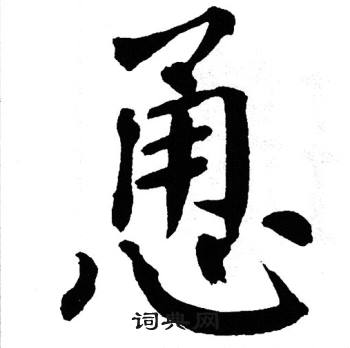 恿
词典网